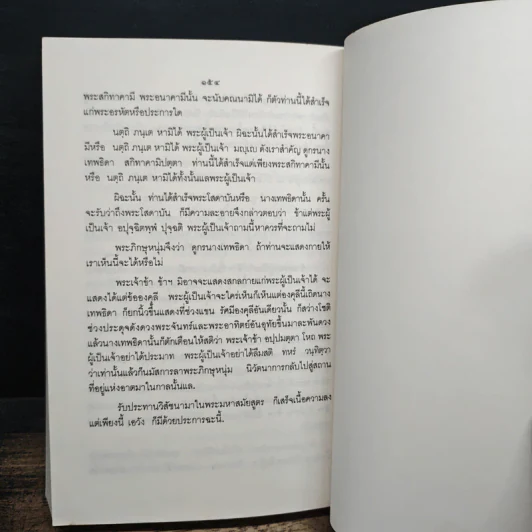 ๑๕๔
พระสกิทาคามี พระอนาคามีนั้น จะนับคณนามิได้ ก็ตัวท่านนี้ได้สำเร็จ
แก่พระอรหัตหรือประการใด
นตฺถิ ภนฺเต หามิได้ พระผู้เป็นเจ้า มิฉะนั้นได้สำเร็จพระอนาคา
มีหรือ นตฺถิ ภนฺเต หามิได้ พระผู้เป็นเจ้า มญฺเญ ดังเราสำคัญ ดูกรนาง
เทพธิดา สกิทาคามิปตฺตา ท่านนี้ได้สำเร็จแต่เพียงพระสกิทาคามีนั้น
หรือ นตฺถิ ภนฺเต หามิได้ทั้งนั้นแลพระผู้เป็นเจ้า
มิฉะนั้น ท่านได้สำเร็จพระโสดาบันหรือ นางเทพธิดานั้น ครั้น
จะรับว่าถึงพระโสดาบัน ก็มีความละอายจึงกล่าวตอบว่า ข้าแต่พระผู้
เป็นเจ้า อปุจฺฉิตพฺพํ ปุจฺฉติ พระผู้เป็นเจ้าถามนี้หาควรที่จะถามไม่
พระภิกษุหนุ่มจึงว่า ดูกรนางเทพธิดา ถ้าท่านจะแสดงกายให้
เราเห็นนี้จะได้หรือไม่
พระเจ้าข้า ข้าฯ มิอาจจะแสดงสกลกายแก่พระผู้เป็นเจ้าได้ จะ
แสดงได้แต่ข้อองคุลี พระผู้เป็นเจ้าจะใคร่เห็นก็เห็นแต่องคุลีนี้เถิดนาง
เทพธิดา ก็ยกนิ้วขึ้นแสดงที่ช่วงแขน รัศมีองคุลีอันเดียวนั้น ก็สว่างโชติ
ช่วงประดุจดังดวงพระจันทร์และพระอาทิตย์อันอุทัยขึ้นมาละพันดวง
แล้วนางเทพธิดานั้นก็ตักเตือนให้สติว่า พระเจ้าข้า อปฺปมตฺตา โหถ พระ
ผู้เป็นเจ้าอย่าได้ประมาท พระผู้เป็นเจ้าอย่าได้ลืมสติ ทหรํ วนฺทิตฺวา
ว่าเท่านั้นแล้วก็นมัสการลาพระภิกษุหนุ่ม นิวัตนาการกลับไปสู่สถาน
ที่อยู่แห่งอาตมาในกาลนั้นแล.
รับประทานวิสัชนามาในพระมหาสมัยสูตร ก็เสร็จเนื้อความลง
แต่เพียงนี้ เอวัง ก็มีด้วยประการฉะนี้.